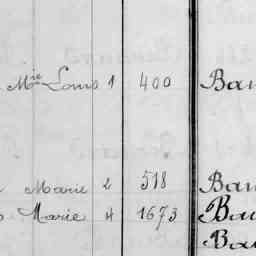 Mie Louis 1 400 Bau
Marie 2 518 Bau
Marie 4 1673 Bau
Bau